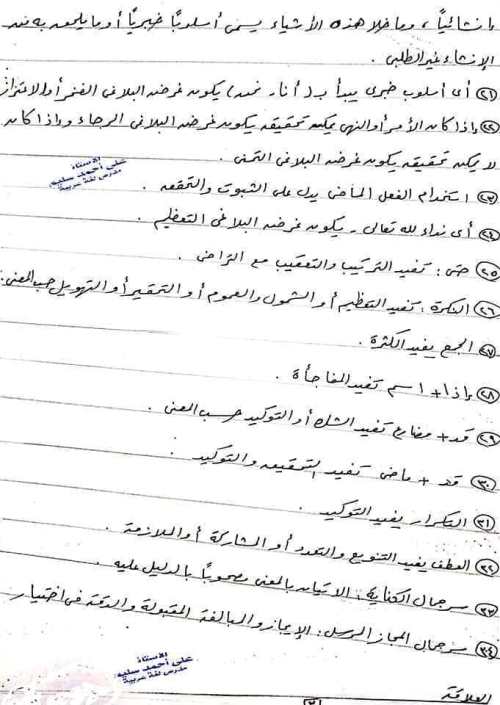 إنشائياً، وما خلا هذه الأشياء يسمى أسلوباً خبرياً أو ما يلحق به من
الإنشاء غير الطلبى.
(٢١) أى أسلوب خبرى يبدأ بـ (أنا - نحن) يكون غرضه البلاغى الفخر أو الاعتزاز
(٢٢) وإذا كان الأمر أو النهى يمكن تحقيقه يكون غرضه البلاغى الرجاء وإذا كان
لا يمكن تحقيقه يكون غرضه البلاغى التمنى.
الأستاذ
على أحمد سليم
مدرس لغة عربية
(٢٣) استخدام الفعل الماضى يدل على الثبوت والتحقق.
(٢٤) أى نداء لله تعالى - يكون غرضه البلاغى التعظيم.
(٢٥) حتى: تفيد الترتيب والتعقيب مع التراخى.
(٢٦) النكرة: تفيد التعظيم أو الشمول والعموم أو التحقير أو التهويل حسب المعنى.
(٢٧) الجمع يفيد الكثرة.
(٢٨) إذا + اسم تفيد المفاجأة.
(٢٩) قد + مضارع تفيد الشك أو التوكيد حسب المعنى.
(٣٠) قد + ماضى تفيد التحقيق والتوكيد.
(٣١) التكرار يفيد التوكيد.
(٣٢) العطف يفيد التنويع والتعدد أو المشاركة أو الملازمة.
(٣٣) سر جمال الكناية: الاتيان بالمعنى مصحوباً بالدليل عليه.
(٣٤) سر جمال المجاز المرسل: الإيجاز والمبالغة المقبولة والدقة فى اختيار
العلاقة
الأستاذ
على أحمد سليم
مدرس لغة عربية